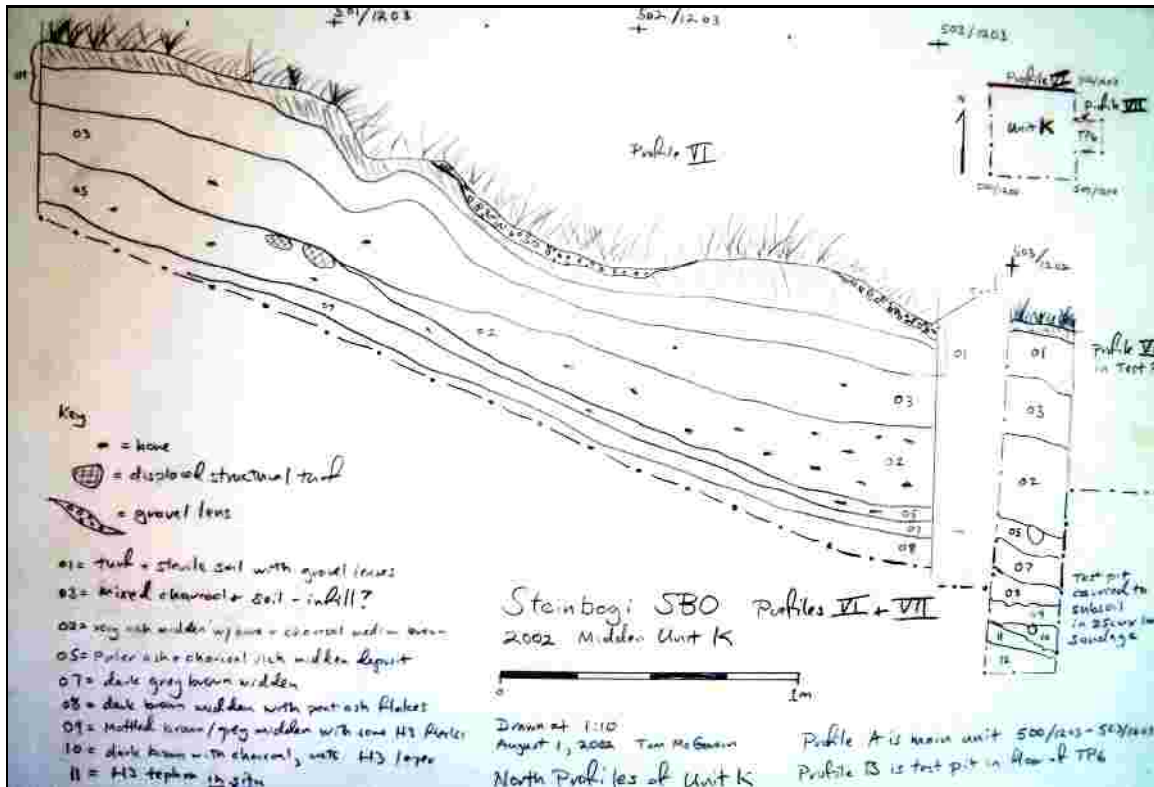 501/1203
502/1203
503/1203
Profile VI
Profile VI
Profile VII
Unit K
TP6
N
503/1202
01
03
05
02
01
03
02
05
07
08
01
03
02
05
07
08
11
10
12
in Test
Key
= bone
= displaced structural turf
= gravel lens
01 = turf + sterile soil with gravel lenses
03 = mixed charcoal + soil - infill?
02 = very rich midden w/ bone + charcoal medium brown
05 = ash + charcoal rich midden deposit
07 = dark grey brown midden
08 = dark brown midden with peat ash flakes
09 = Mottled brown/grey midden with some H3 flecks
10 = dark brown with charcoal, H3 layer
11 = H3 tephra in situ
Steinbogi SBO Profiles VI + VII
2002 Midden Unit K
0 1m
Drawn at 1:10
August 1, 2002 Tom McGovern
North Profiles of Unit K
Profile A is main unit 500/1203 - 503/1203
Profile B is test pit in floor of TP6
Test pit
to
subsoil
in 25cm
sondage